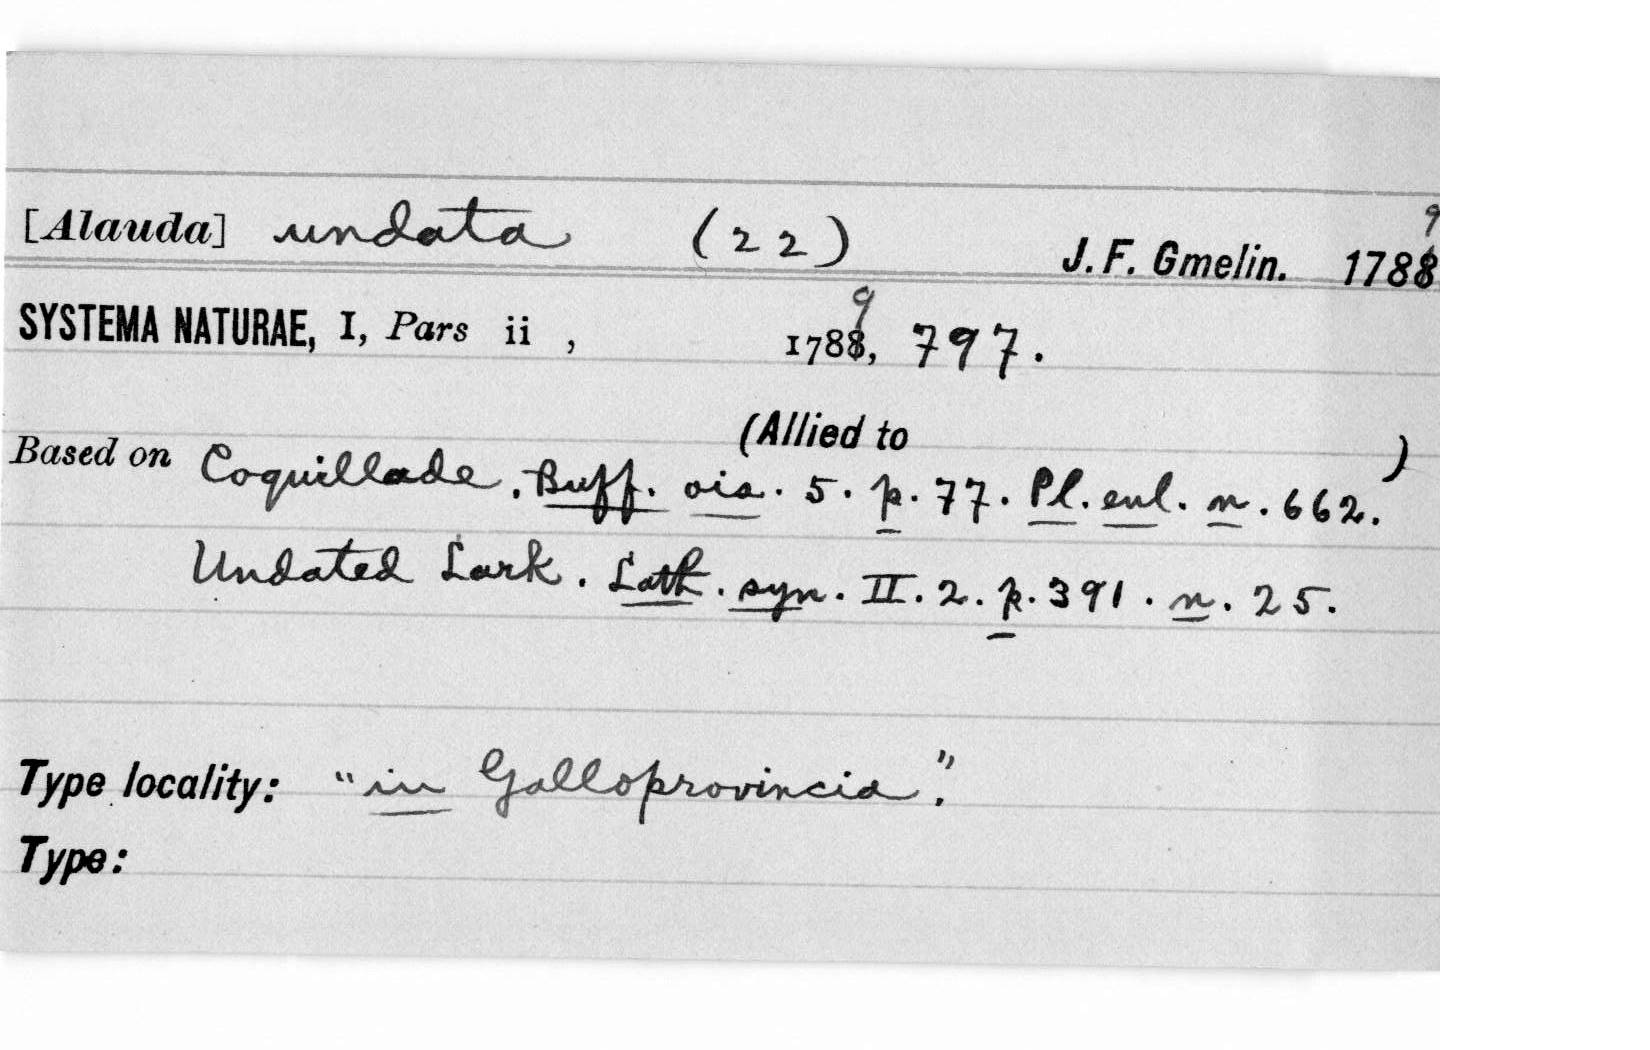 [Alauda] undata (22) J. F. Gmelin. 1789
SYSTEMA NATURAE, I, Pars ii , 1789, 797.
(Allied to )
Based on Coquillade. Buff. ois. 5. p. 77. Pl. enl. n. 662.
Undated Lark. Lath. syn. II. 2. p. 391. n. 25.
Type locality: "in Galloprovincia".
Type: